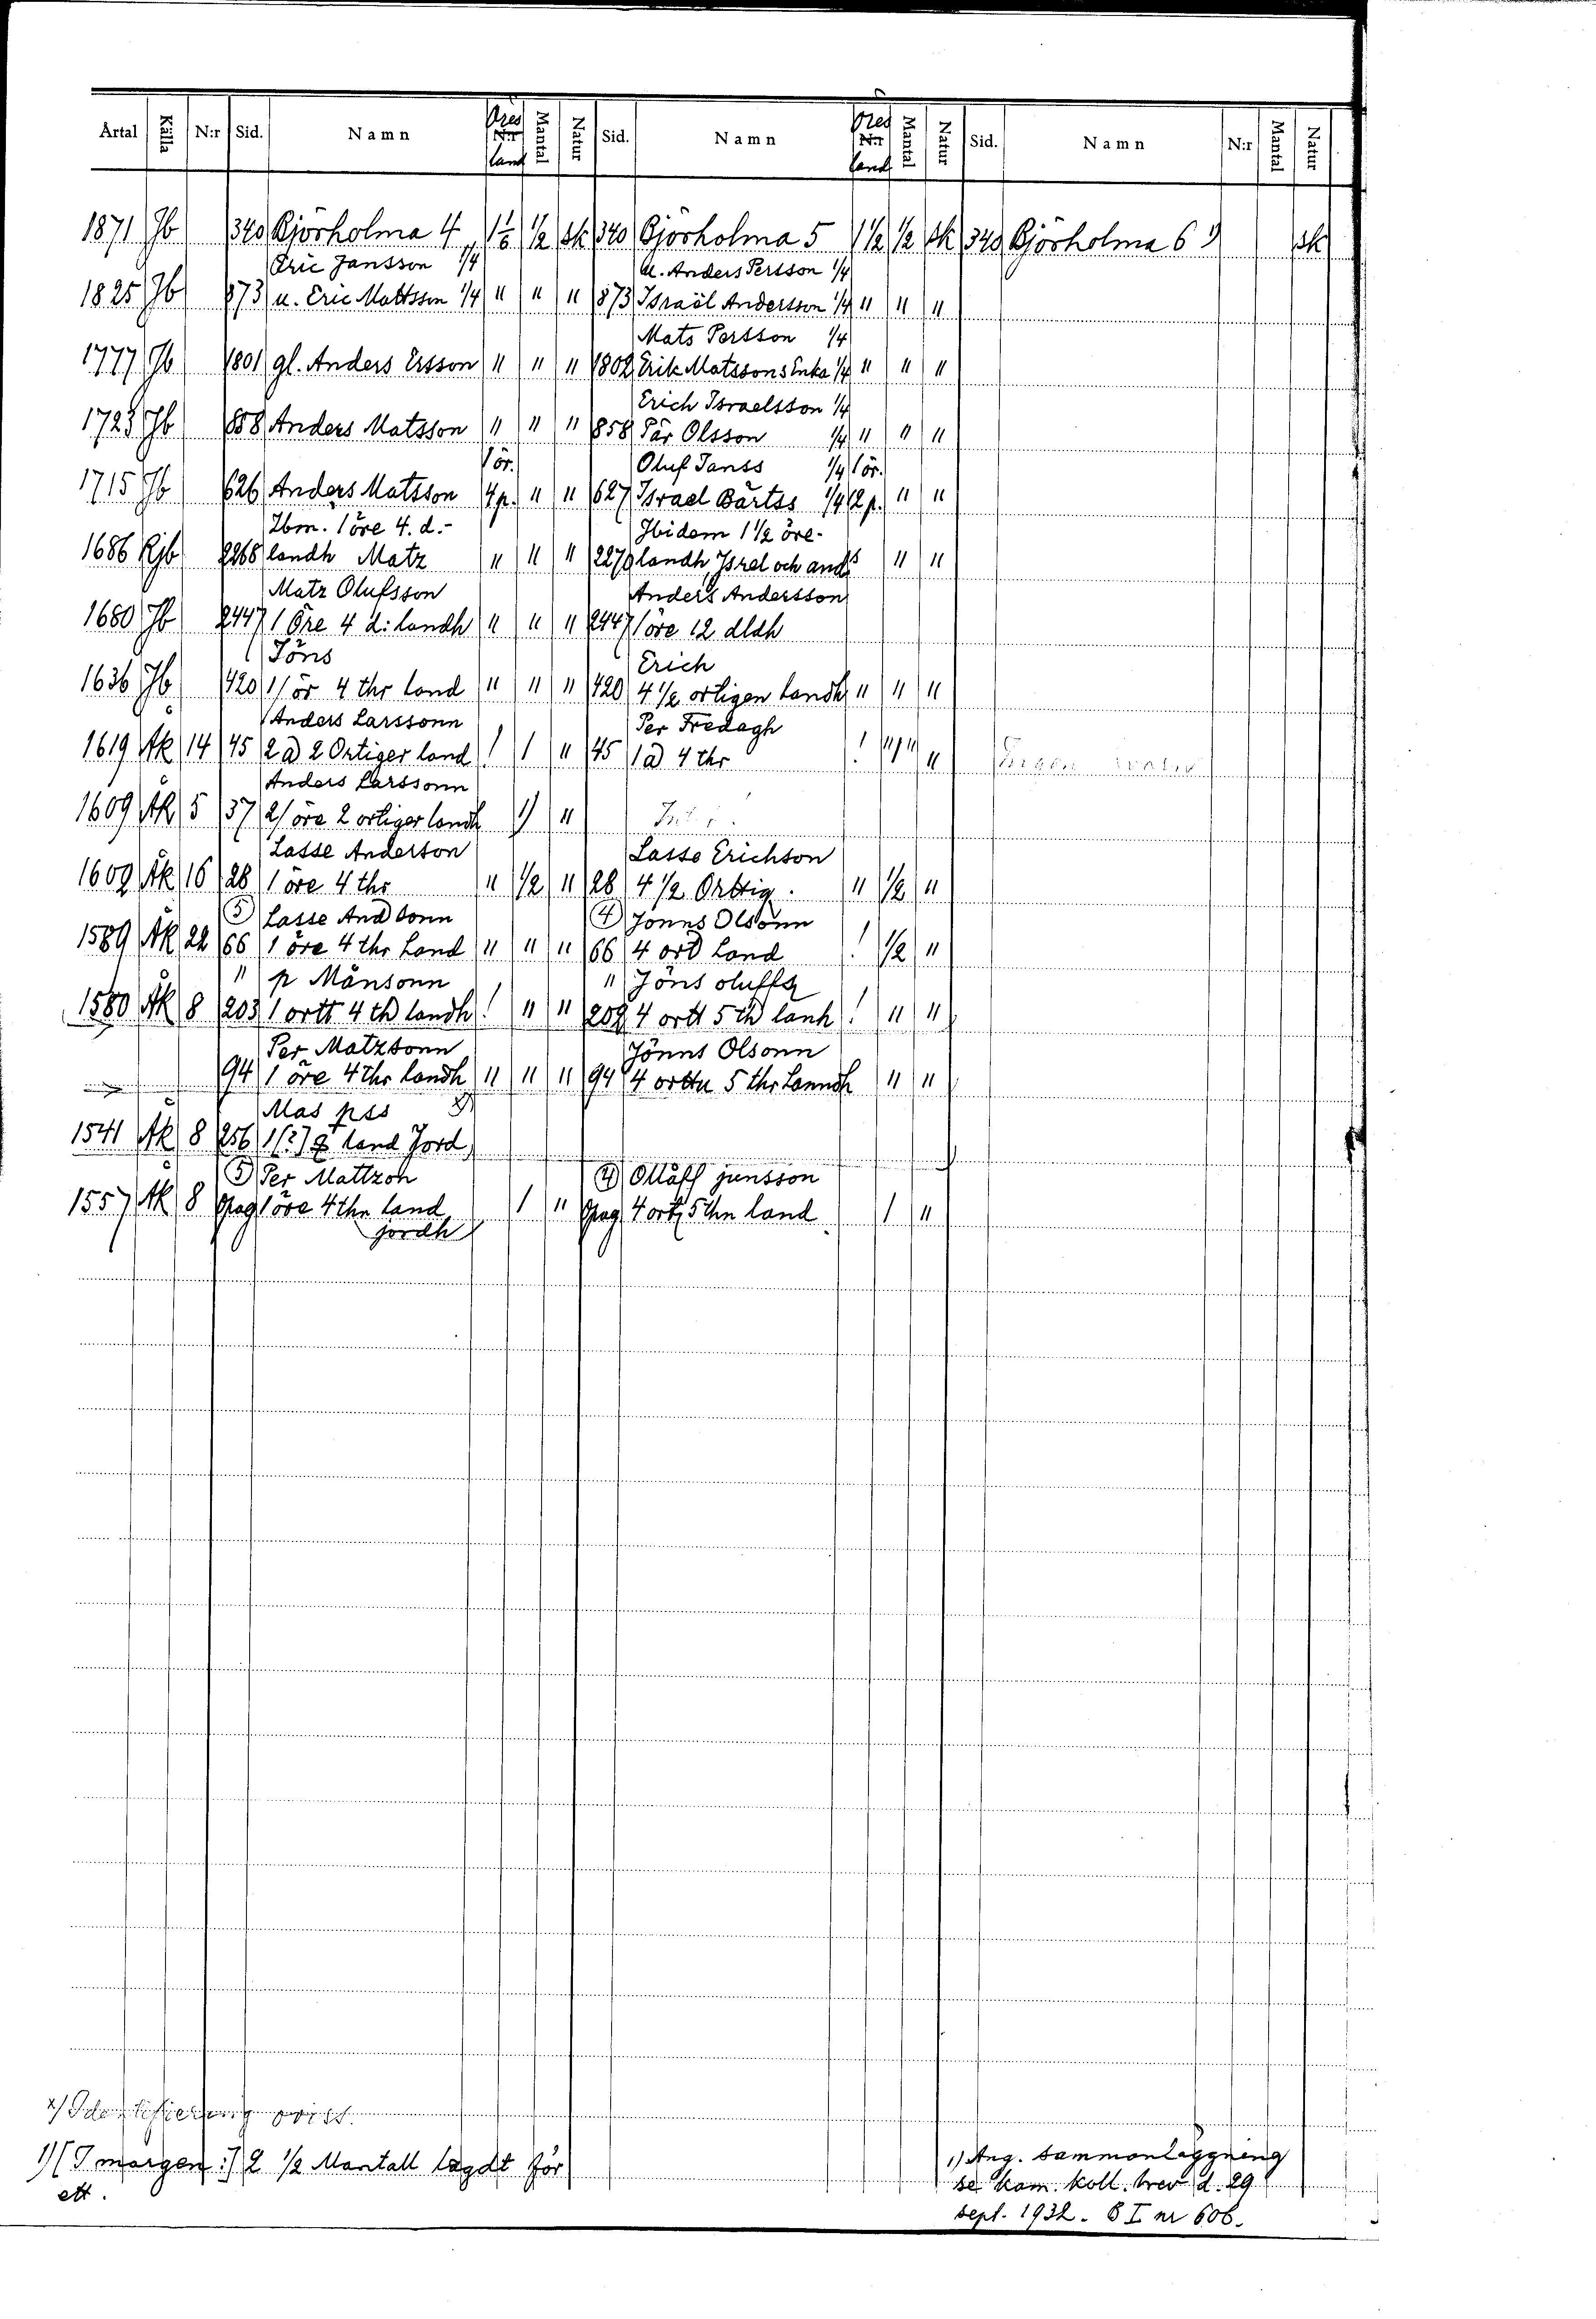 Årtal Källa N:r Sid. Namn Öres N:r land Mantal Natur Sid. Namn Öres N:r land Mantal Natur Sid. Namn N:r Mantal Natur
1871 Jb 340 Björholma 4 1/2 sk 340 Björholma 5 1 1/2 1/2 sk 340 Björholma 6 1) sk
Eric Jansson 1/4 u. Anders Persson 1/4
1825 Jb 873 u. Eric Mattsson 1/4 " " " 873 Israël Andersson 1/4 " " "
Mats Persson 1/4
1777 Jb 1801 gl. Anders Ersson " " " 1802 Erik Matssons Enka 1/4 " " "
Erich Israelsson 1/4
1723 Jb 858 Anders Matsson " " " 858 Pär Olsson 1/4 " " "
1 ör. Oluf Janss 1/4 1 ör.
1715 Jb 626 Anders Matsson 4 p. " " 627 Israel Bärtss 1/4 12 p. " "
Ibm. 1 öre 4. d.- Ibidem 1 1/2 öre-
1686 Rjb 2268 landh Matz " " " 2270 landh, Isrel och ands " "
Matz Olufsson Anders Andersson
1680 Jb 2447 1 Öre 4 d: landh " " " 2447 1 öre 12 dldh
Jöns Erich
1636 Jb 420 1/ ör 4 thr land " " " 420 4 1/2 ortigen landh " " "
Anders Larssonn Per Fredagh
1619 Äk 14 45 2 a) 2 Ortiger land ! 1 " 45 1 a) 4 thr ! " "
Anders Larssonn
1609 Äk 5 37 2/ öre 2 ortiger landh 1) "
Lasse Anderson Lasse Erichson
1602 Äk 16 28 1 öre 4 thr " 1/2 " 28 4 1/2 Orttig. " 1/2 "
5) Lasse And sonn 4) Jonns Olsonn
1589 Äk 22 66 1 öre 4 thr Land " " " 66 4 ort Land ! 1/2 "
" p Månsonn " Jöns oluffz
1580 Äk 8 203 1 ortt 4 th landh ! " " 202 4 ortt 5 th lanh ! " "
Per Matzsonn Jönns Olsonn
94 1 öre 4 thr landh " " " 94 4 orttu 5 thr Lanndh " "
Mas pss
1541 Äk 8 256 1 [?] land Jord
5) Per Mattzon 4) Ollåff junsson
1557 Äk 8 Opag 1 öre 4 thn land 1 " Opag 4 ort 5 thn land 1 "
jordh
x) Identifiering oviss.
1) [I margen:] 2 1/2 Mantall lagdt för 1) Ang. sammanläggning
ett. se kam. koll. brev d. 29
sept. 1932. B I nr 606.